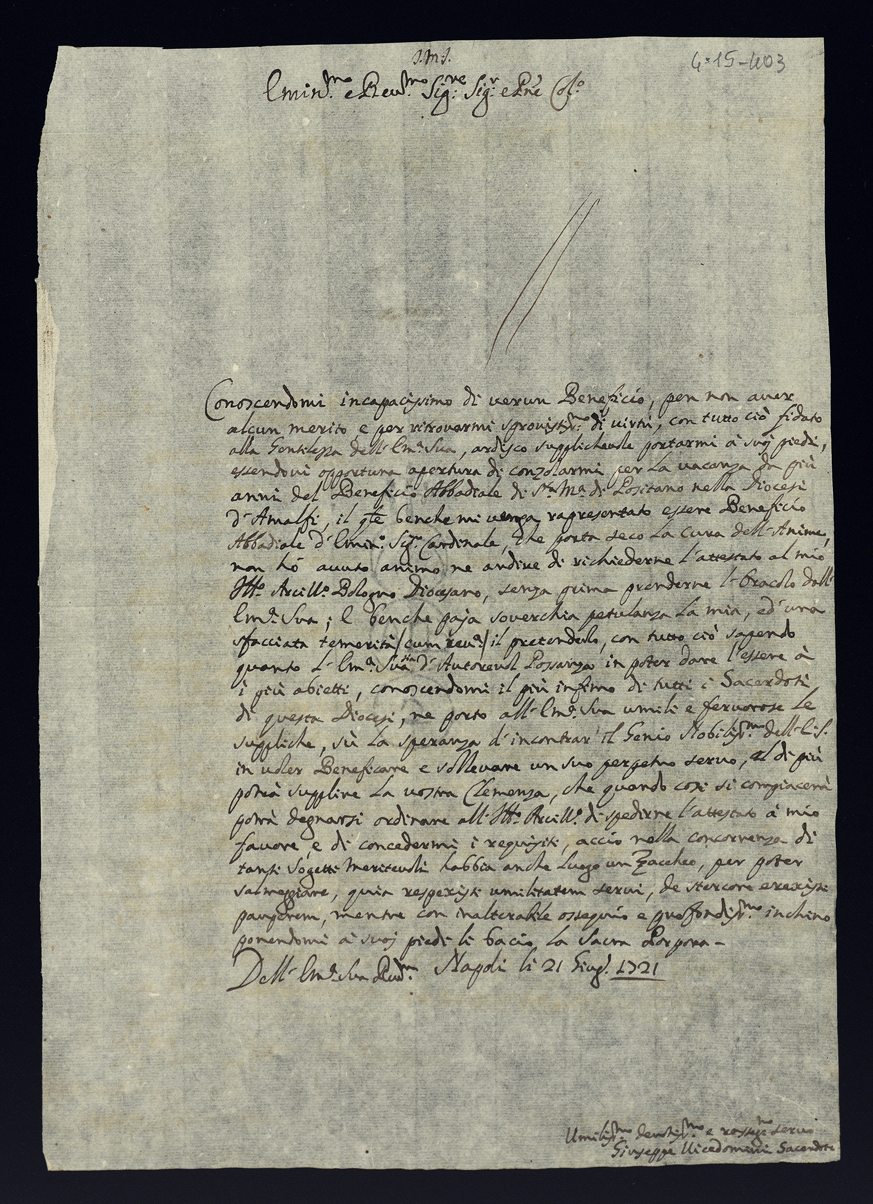 J.M.J.
4-15-403
Emin.mo e Reu.mo Sig.re Sig.r e Pne Col.o
Conoscendomi incapacissimo di uerun Beneficio, per non auer
alcun merito e per ritrovarmi sprouist.mo di uirtù, con tutto ciò fidato
alla Gentilezza dell' Em.a Sua, ardisco supplicheuole portarmi à suoj piedi,
essendoui opportuna apertura di conzolarmi per la uacanza da più
anni del Beneficio Abbadiale di S.ta M.a di Positano nella Diocesi
d'Amalfi, il q.le benche mi uenga rapresentato essere Beneficio
Abbadiale d'Emin.o Sig.r Cardinale, che porta seco la cura dell' Anime,
non hò auuto animo ne ardire di richiederne l'attestato al mio
Ill.o Arciu.o Bologna Diocesano, senza prima prenderne l'Oracolo dall'
Em.a Sua; E benche paja souerchia petulanza la mia, ed' una
sfacciata temerità /cum reu.a/ il pretenderlo, con tutto ciò sapendo
quanto l' Em.a Sua sia d'Autoreuol Possanza in poter dare l'essere à
i più abietti, conoscendomi il più infimo di tutti i Sacerdoti
di questa Diocesi, ne porto all' Em.a Sua umili e feruorose le
suppliche, sù la speranza d'incontrar' il Genio Nobiliss.mo dell' E.S.
in uoler Beneficare e solleuare un suo perpetuo seruo, al di più
potrà supplire la uostra Clemenza, che quando così si compiacerà
potrà degnarsi ordinare all' Ill.o Arciu.o di spedirne l'attestato à mio
fauore, e di concedermi i requisiti, acciò nella concorrenza di
tanti Sogetti Meriteuoli habbia anche luogo un Zaccheo, per poter
salmeggiare, quia respexisti umilitatem serui, de stercore erexisti
pauperem, mentre con inalterabile ossequio e profondiss.mo inchino
ponendomi à suoj piedi li bacio la Sacra Porpora-
Dell' Em.a Sua Reu.ma Napoli li 21 Giug.o 1721
Umiliss.mo deuotiss.mo e seruo
Giuseppe Uicedomini Sacerdote